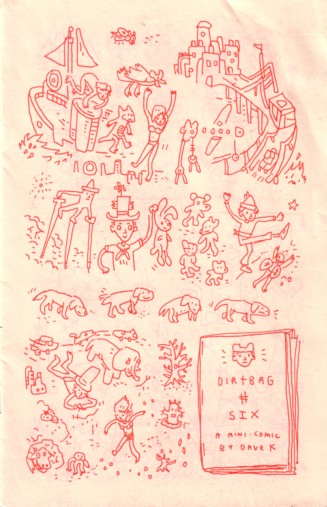 DIRTBAG
#
SIX
A MINI-COMIC
BY DAVE K